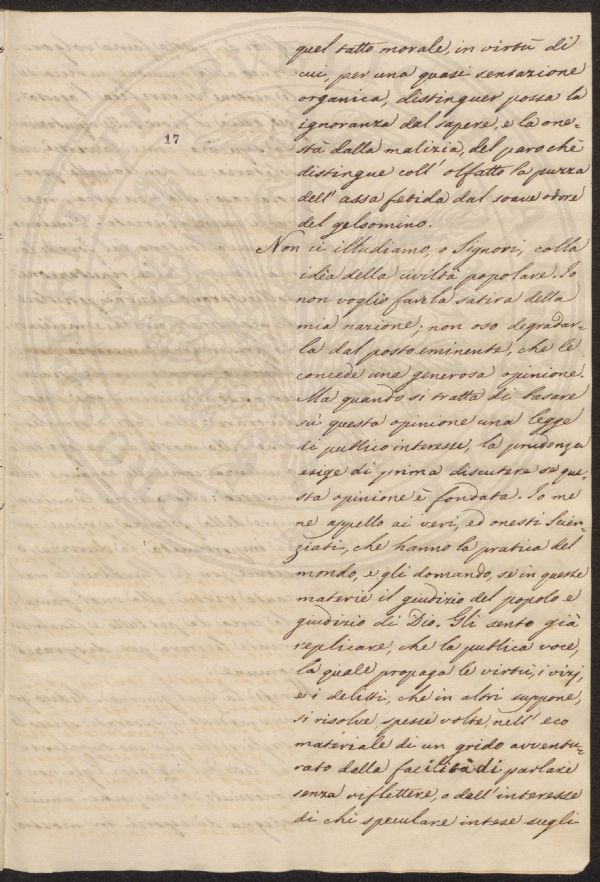 quel tatto morale, in virtù di
cui, per una quasi sensazione
organica, distinguer possa la
ignoranza dal sapere, e la one-
17
stà dalla malizia, del paro chè
distingue coll' olfatto la puzza
dell' assa fetida dal soave odore
del gelsomino.
Non ci illudiamo, o Signori, colla
idèa della civiltà popolare. Io
non voglio fare la satira della
mia nazione; non oso degradar-
la dal posto eminente, che le
concede una generosa opinione.
Ma quando si tratta di basare
sù questa opinione una legge
di publico interesse, la prudenza
esige di prima discutere se que-
sta opinione è fondata. Io me
ne appello ai veri, ed onesti Scien-
ziati, che hanno la pratica del
mondo, e gli domando, se in queste
materie il giudizio del popolo è
giudizio di Dio. Gli sento già
replicare, che la publica voce,
la quale propaga le virtù, i vizj,
e i delitti, che in altri suppone,
si risolve spesse volte nell' eco
materiale di un grido avventu-
rato dalla facilità di parlare
senza riflettere, o dall' interesse
di chi speculare intese sugli